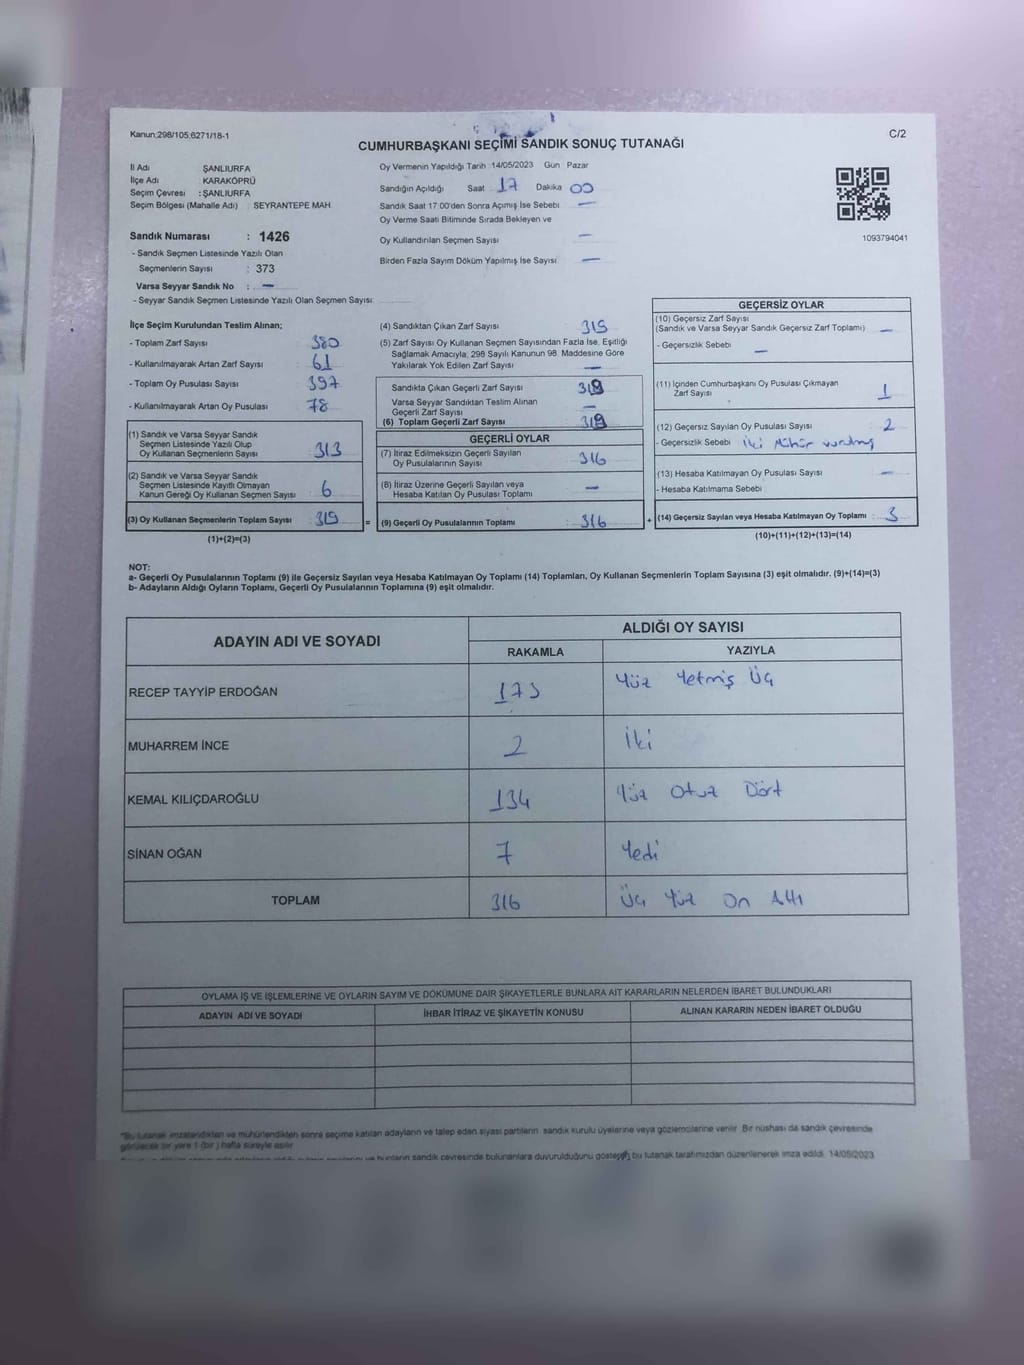 Kanun;298/105;6271/18-1
C/2
CUMHURBAŞKANI SEÇİMİ SANDIK SONUÇ TUTANAĞI
İl Adı ŞANLIURFA
İlçe Adı KARAKÖPRÜ
Seçim Çevresi : ŞANLIURFA
Seçim Bölgesi (Mahalle Adı) SEYRANTEPE MAH.
Oy Vermenin Yapıldığı Tarih 14/05/2023 Gün Pazar
Sandığın Açıldığı Saat 17 Dakika 00
Sandık Saat 17:00'den Sonra Açımış İse Sebebi —
Oy Verme Saati Bitiminde Sırada Bekleyen ve
Oy Kullandırılan Seçmen Sayısı —
Birden Fazla Sayım Döküm Yapılmış İse Sayısı —
1093794041
Sandık Numarası : 1426
- Sandık Seçmen Listesinde Yazılı Olan
Seçmenlerin Sayısı : 373
Varsa Seyyar Sandık No : —
- Seyyar Sandık Seçmen Listesinde Yazılı Olan Seçmen Sayısı:
İlçe Seçim Kurulundan Teslim Alınan;
- Toplam Zarf Sayısı 380
- Kullanılmayarak Artan Zarf Sayısı 61
- Toplam Oy Pusulası Sayısı 397
- Kullanılmayarak Artan Oy Pusulası 78
(1) Sandık ve Varsa Seyyar Sandık
Seçmen Listesinde Yazılı Olup
Oy Kullanan Seçmenlerin Sayısı 313
(2) Sandık ve Varsa Seyyar Sandık
Seçmen Listesinde Kayıtlı Olmayan
Kanun Gereği Oy Kullanan Seçmen Sayısı 6
(3) Oy Kullanan Seçmenlerin Toplam Sayısı 319 =
(1)+(2)=(3)
(4) Sandıktan Çıkan Zarf Sayısı 319
(5) Zarf Sayısı Oy Kullanan Seçmen Sayısından Fazla İse, Eşitliği
Sağlamak Amacıyla, 298 Sayılı Kanunun 98. Maddesine Göre
Yakılarak Yok Edilen Zarf Sayısı —
Sandıkta Çıkan Geçerli Zarf Sayısı 319
Varsa Seyyar Sandıktan Teslim Alınan
Geçerli Zarf Sayısı —
(6) Toplam Geçerli Zarf Sayısı 319
GEÇERLİ OYLAR
(7) İtiraz Edilmeksizin Geçerli Sayılan
Oy Pusulalarının Sayısı 316
(8) İtiraz Üzerine Geçerli Sayılan veya
Hesaba Katılan Oy Pusulası Toplamı —
(9) Geçerli Oy Pusulalarının Toplamı : 316 +
GEÇERSİZ OYLAR
(10) Geçersiz Zarf Sayısı
(Sandık ve Varsa Seyyar Sandık Geçersiz Zarf Toplamı) —
- Geçersizlik Sebebi —
(11) İçinden Cumhurbaşkanı Oy Pusulası Çıkmayan
Zarf Sayısı 1
(12) Geçersiz Sayılan Oy Pusulası Sayısı 2
- Geçersizlik Sebebi İki Mühür vurulmuş
(13) Hesaba Katılmayan Oy Pusulası Sayısı —
- Hesaba Katılmama Sebebi
(14) Geçersiz Sayılan veya Hesaba Katılmayan Oy Toplamı : 3
(10)+(11)+(12)+(13)=(14)
NOT:
a- Geçerli Oy Pusulalarının Toplamı (9) ile Geçersiz Sayılan veya Hesaba Katılmayan Oy Toplamı (14) Toplamları, Oy Kullanan Seçmenlerin Toplam Sayısına (3) eşit olmalıdır. (9)+(14)=(3)
b- Adayların Aldığı Oyların Toplamı, Geçerli Oy Pusulalarının Toplamına (9) eşit olmalıdır.
ADAYIN ADI VE SOYADI ALDIĞI OY SAYISI
RAKAMLA YAZIYLA
RECEP TAYYİP ERDOĞAN 173 Yüz Yetmiş Üç
MUHARREM İNCE 2 İki
KEMAL KILIÇDAROĞLU 134 Yüz Otuz Dört
SİNAN OĞAN 7 Yedi
TOPLAM 316 Üç Yüz On Altı
OYLAMA İŞ VE İŞLEMLERİNE VE OYLARIN SAYIM VE DÖKÜMÜNE DAİR ŞİKAYETLERLE BUNLARA AİT KARARLARIN NELERDEN İBARET BULUNDUKLARI
ADAYIN ADI VE SOYADI İHBAR İTİRAZ VE ŞİKAYETİN KONUSU ALINAN KARARIN NEDEN İBARET OLDUĞU
*Bu tutanak imzalandıktan ve mühürlendikten sonra seçime katılan adayların ve talep eden siyasi partilerin sandık kurulu üyelerine veya gözlemcilerine verilir. Bir nüshası da sandık çevresinde
görülecek bir yere 1 (bir) hafta süreyle asılır.
ve bunların sandık çevresinde bulunanlara duyurulduğunu gösterir bu tutanak tarafımızdan düzenlenerek imza edildi. 14/05/2023